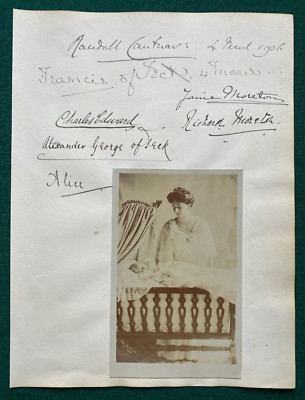 Randall Cantuar: 4 March 1906
Francis of Teck 4 March
Janie Moreton
Charles Edward Richard Moreton
Alexander George of Teck
Alice